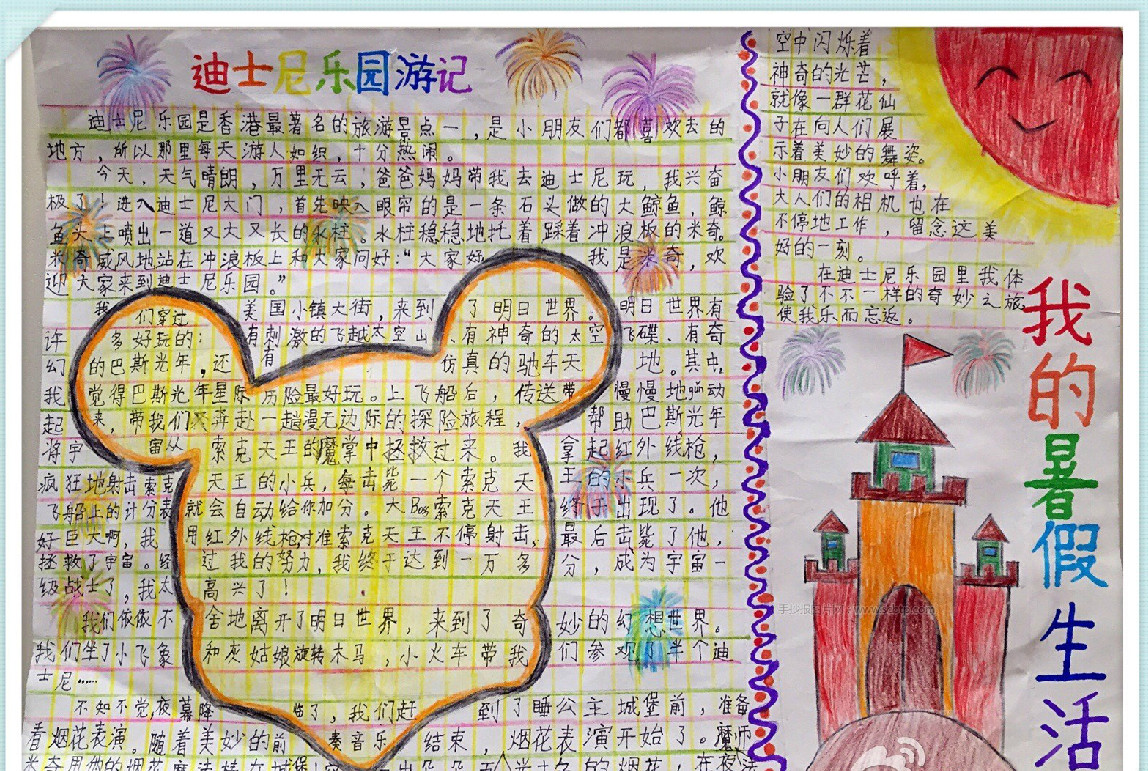 迪士尼乐园游记
迪士尼乐园是香港最著名的旅游景点一,是小朋友们都喜欢去的
地方,所以那里每天游人如织,十分热闹。
今天,天气晴朗,万里无云,爸爸妈妈带我去迪士尼玩,我兴奋
极了!进入迪士尼大门,首先映入眼帘的是一条石头做的大鲸鱼,鲸
鱼头上喷出一道又大又长的水柱。水柱稳稳地托着踩着冲浪板的米奇。
米奇威风地站在冲浪板上和大家问好:“大家好 我是米奇,欢
迎大家来到迪士尼乐园。”
我们穿过美国小镇大街,来到了明日世界。明日世界有
许多好玩的:有刺激的飞越太空山、有神奇的太空飞碟、有奇
幻的巴斯光年,还有仿真的驰车天地。其中
我觉得巴斯光年星际历险最好玩。上飞船后,传送带慢慢地驱动
起来,带我们 奔赴一趟漫无边际的探险旅程,帮助巴斯光年
将宇宙从索克天王的魔掌中拯救过来。我拿起红外线枪,
疯狂地射击索克天王的小兵,每击毙一个索克天王的小兵一次,
飞船上的计分表就会自动给你加分。大Boss索克天王终于出现了。他
好巨大啊,我用红外线枪对准索克天王不停射击,最后击毙了他,
拯救了宇宙。经过我的努力,我终于达到一万多分,成为宇宙一
级战士了,我太高兴了!
我们依依不舍地离开了明日世界,来到了奇妙的幻想世界。
我们坐了小飞象和灰姑娘旋转木马,小火车带我们参观了半个迪
士尼……
不知不觉,夜幕降临了,我们赶到了睡公主城堡前,准备
看烟花表演。随着美妙的前奏音乐结束,烟花表演开始了。
空中闪烁着
神奇的光芒,
就像一群花仙
子在向人们展
示着美妙的舞姿。
小朋友们欢呼着,
大人们的相机也在
不停地工作,留念这美
好的一刻。
在迪士尼乐园里我体
验了不一样的奇妙之旅,
使我乐而忘返。
我的暑假生活